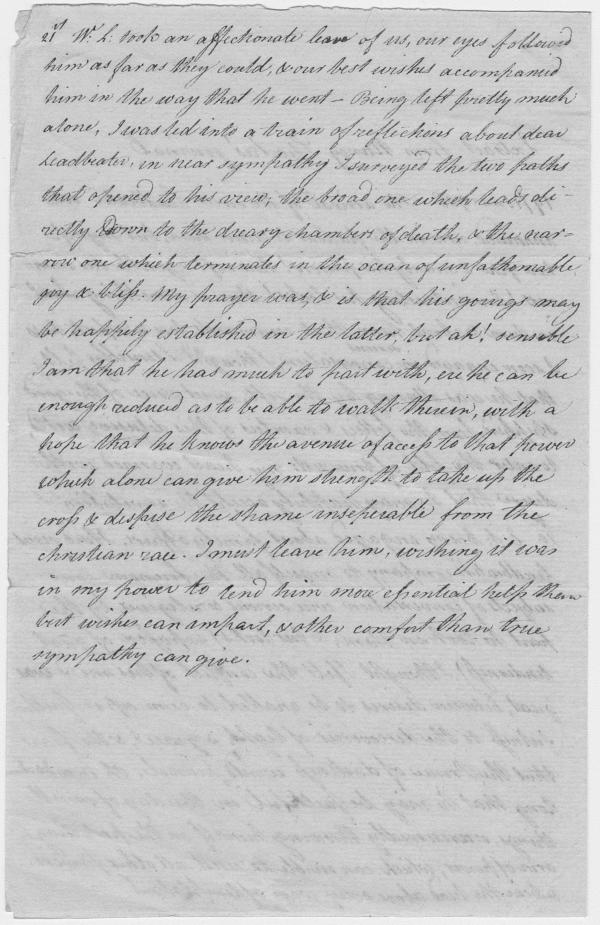 21st Wm. L. took an affectionate leave of us, our eyes followed
him as far as they could, & our best wishes accompanied
him in the way that he went – Being left pretty much
alone, I was led into a train of reflections about dear
Leadbeater, in near sympathy I surveyed the two paths
that opened to his view; the broad one which leads di-
rectly Down to the dreary chambers of death, & the nar-
row one which terminates in the ocean of unfathomable
joy & bliss. My prayer was, & is that his goings may
be happily established in the latter, but ah! sensible
I am that he has much to part with, ere he can be
enough reduced as to be able to walk therein, with a
hope that he knows the avenue of access to that power
which alone can give him strength to take up the
cross & despise the shame inseperable from the
christian race. I must leave him, wishing it was
in my power to lend him more essential help then
best wishes can impart, & other comfort than true
sympathy can give.